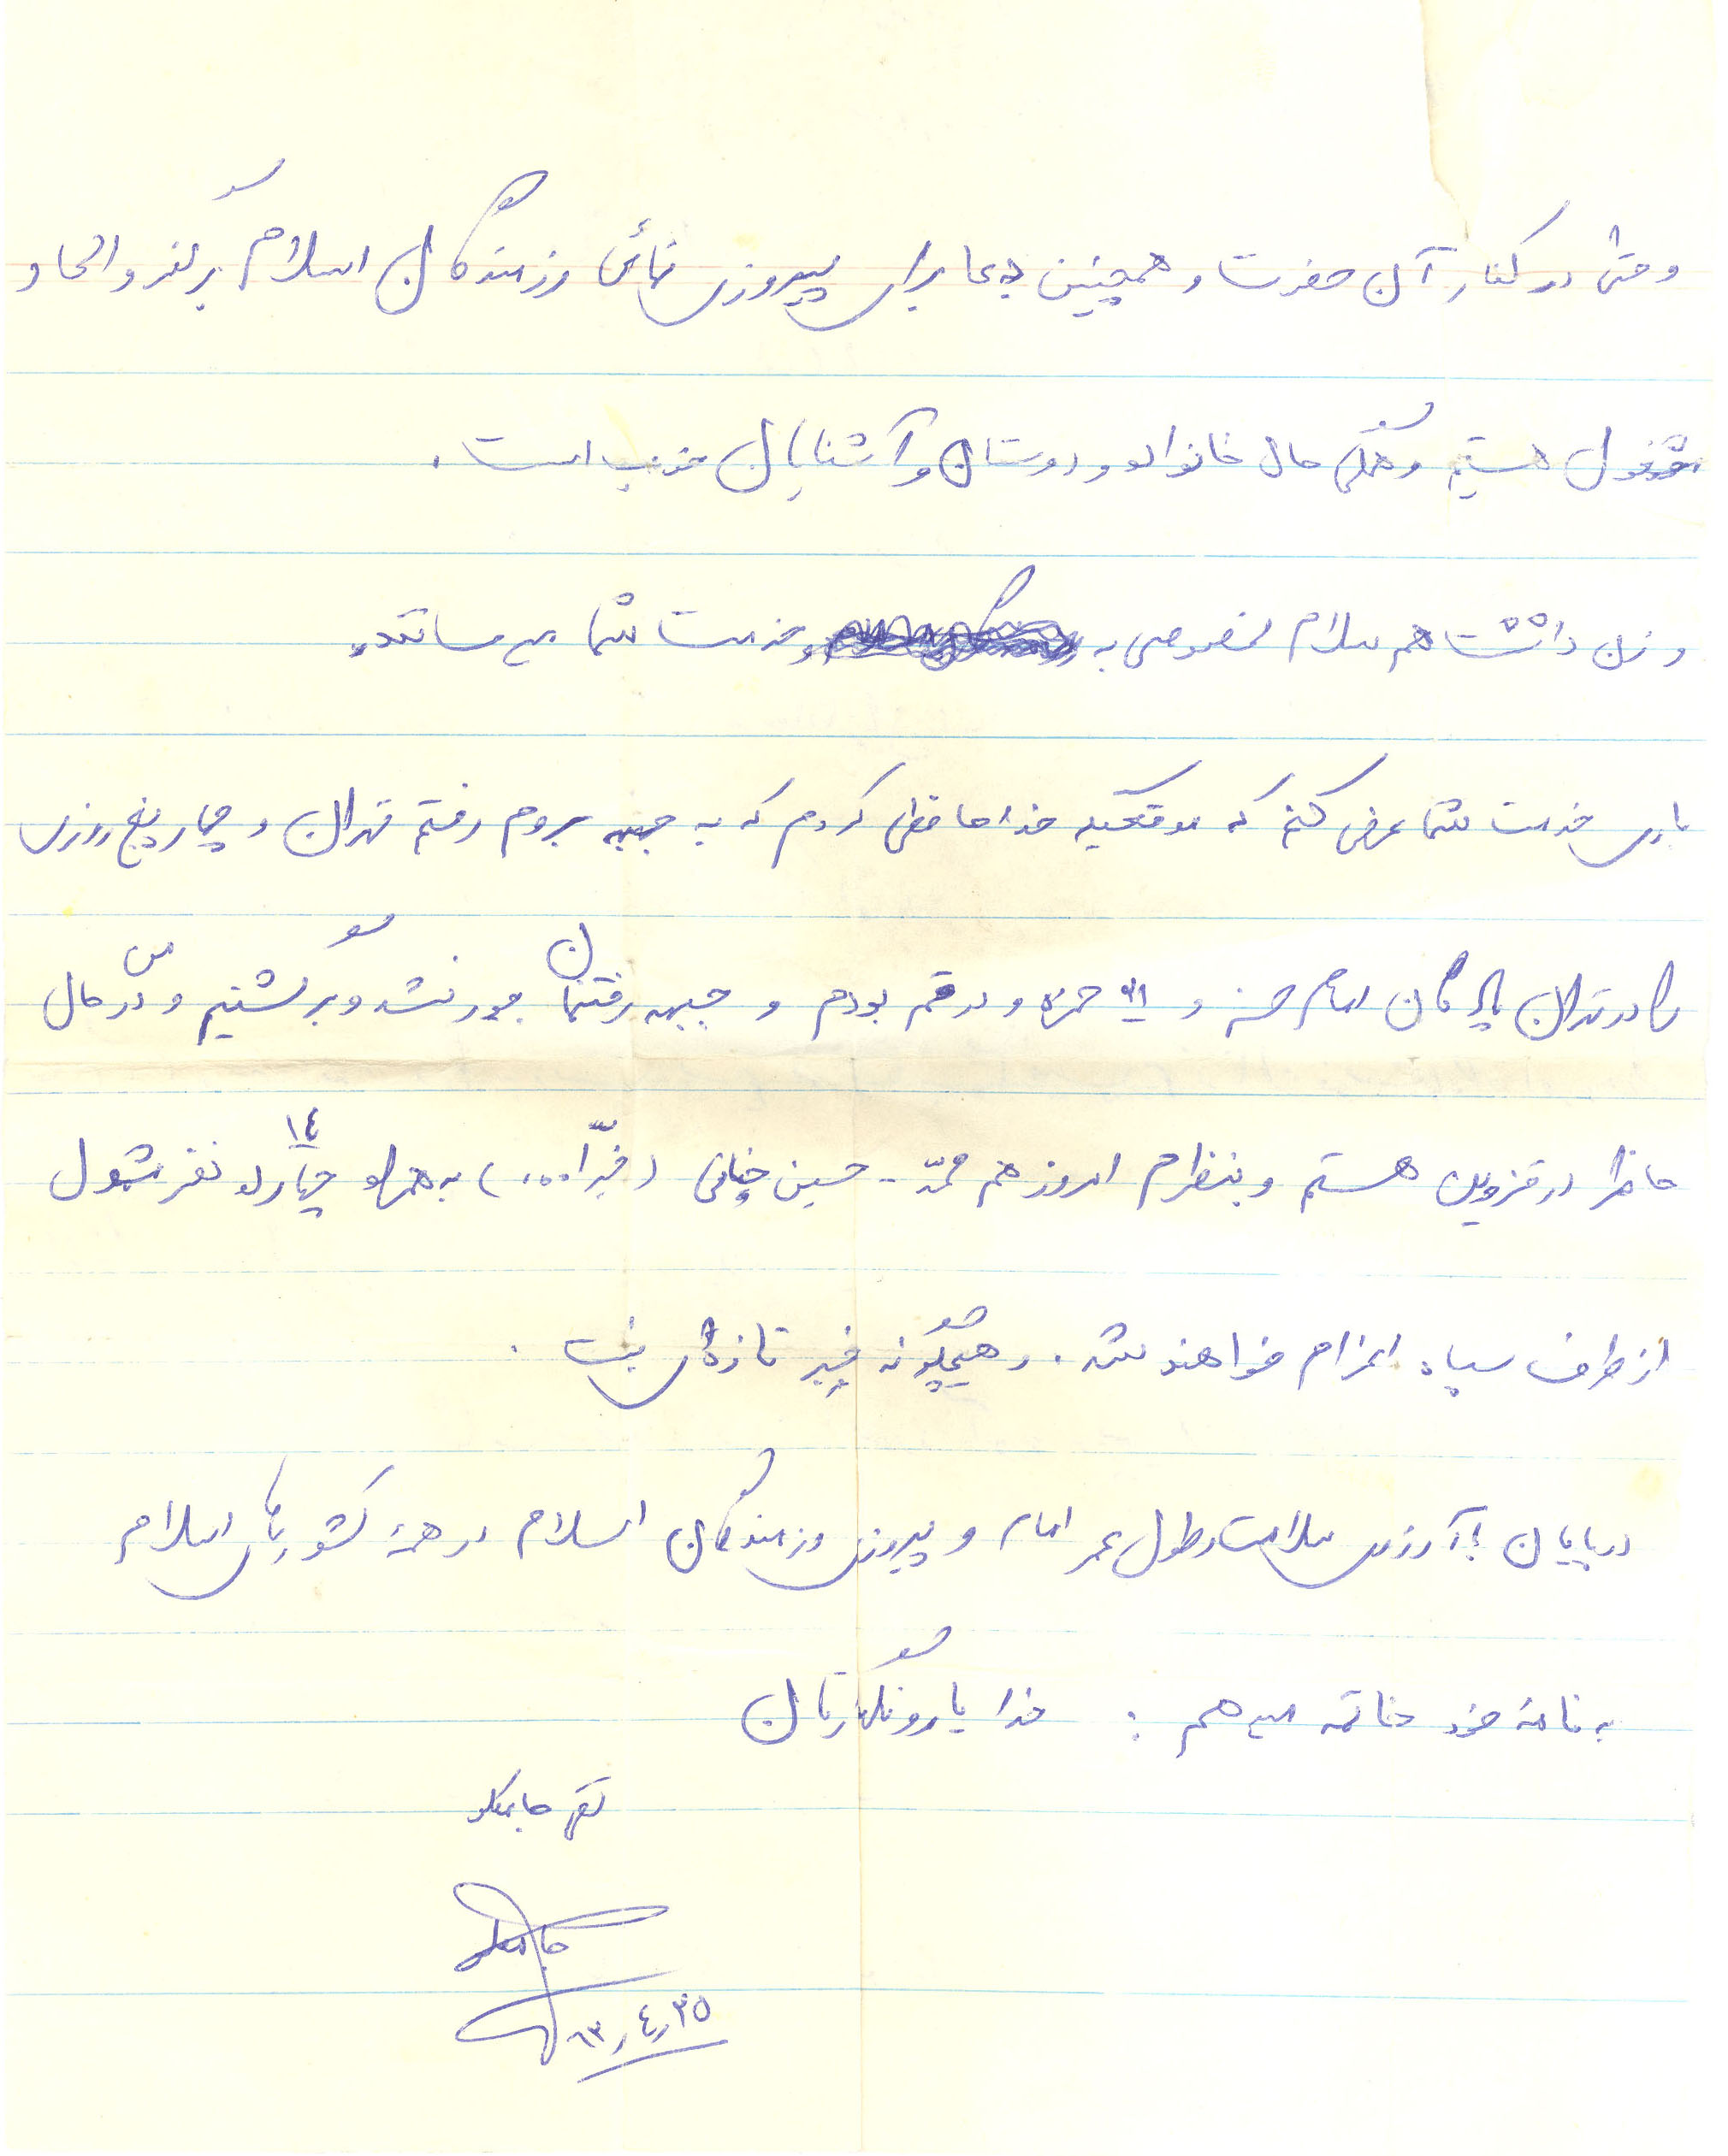 وحتی در کنار آن حضرت و همچنین دعا برای پیروزی نهائی رزمندگان اسلام بر کفر و الحاد و
مشغول هستیم و همگی حال خانواده و دوستان و آشنایان خوب است .
و زن داشت هم سلام مخصوصی به خدمت شما می‌رسانند .
باری خدمت شما عرض کنم که موقعیکه خداحافظی کردم که به جبهه بروم رفتم تهران و چهار پنج روزی
را در تهران پادگان امام حسن و ۲۱ حمزه و در قم بودم و جبهه رفتنمان جور نشد و برگشتیم و من در حال
حاظر در قزوین هستم و بنظرم امروز هم محمّد - حسین چپانی ( ....) به همراه چهارده ۱٤ نفر مشمول
از طرف سپاه اعزام خواهند شد . و هیچگونه خبر تازه‌ای نیست .
در پایان با آرزوی سلامت و طول عمر امام و پیروزی رزمندگان اسلام در همهٔ کشورهای اسلام
به نامهٔ خود خاتمه می‌دهم : خدا یار و نگهدارتان
تقی
٦۳ر٤ر۲٥